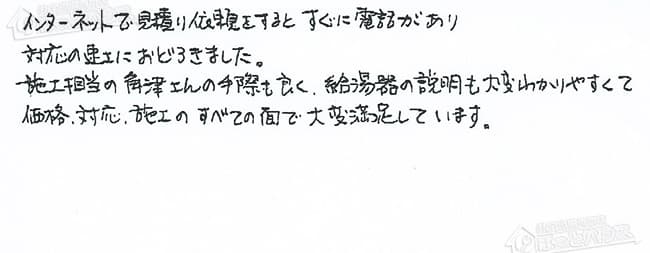 インターネットで見積り依頼をするとすぐに電話があり
対応の速さにおどろきました。
施工担当の角津さんの手際も良く、給湯器の説明も大変わかりやすくて
価格、対応、施工のすべての面で大変満足しています。